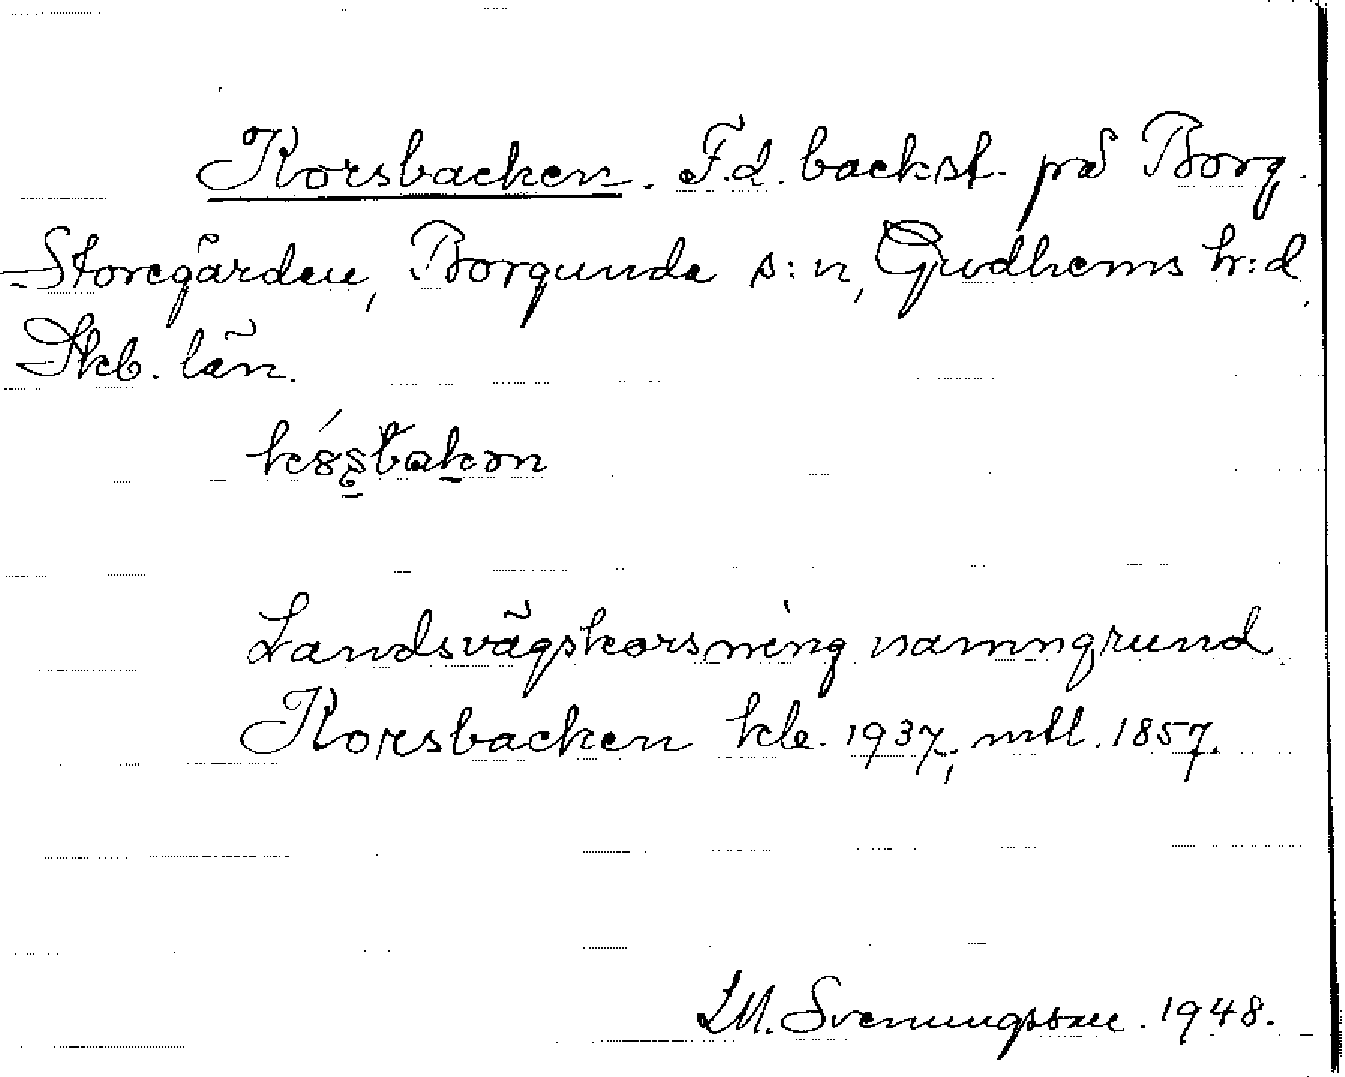 Korsbacken. F.d. backst. på Borg.
Storegården, Borgunda s:n, Gudhems h:d,
Skb. län.
Landsvägskorsning namngrund
Korsbacken kle. 1937, mtl. 1857.
Svenungsson. 1948.